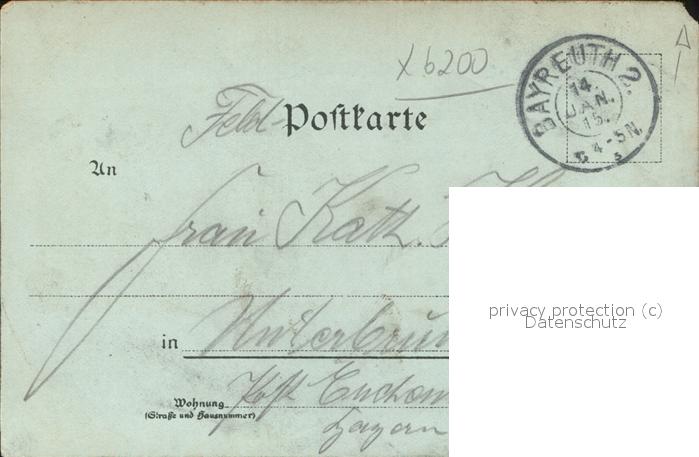 x 6200
BAYREUTH 2.
14.
JAN.
15.
4-5N.
Feld Postkarte
An
Frau Kath.
in Unterbrun
Wohnung
(Straße und Hausnummer)
Post
Bayern
privacy protection (c)
Datenschutz